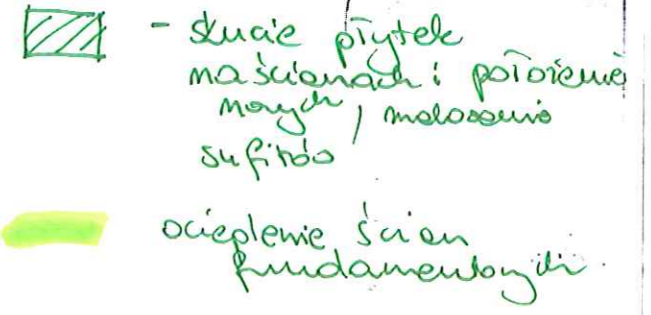 - skucie płytek
na ścianach i położenie
nowych, malowanie
sufitów
ocieplenie ścian
fundamentowych